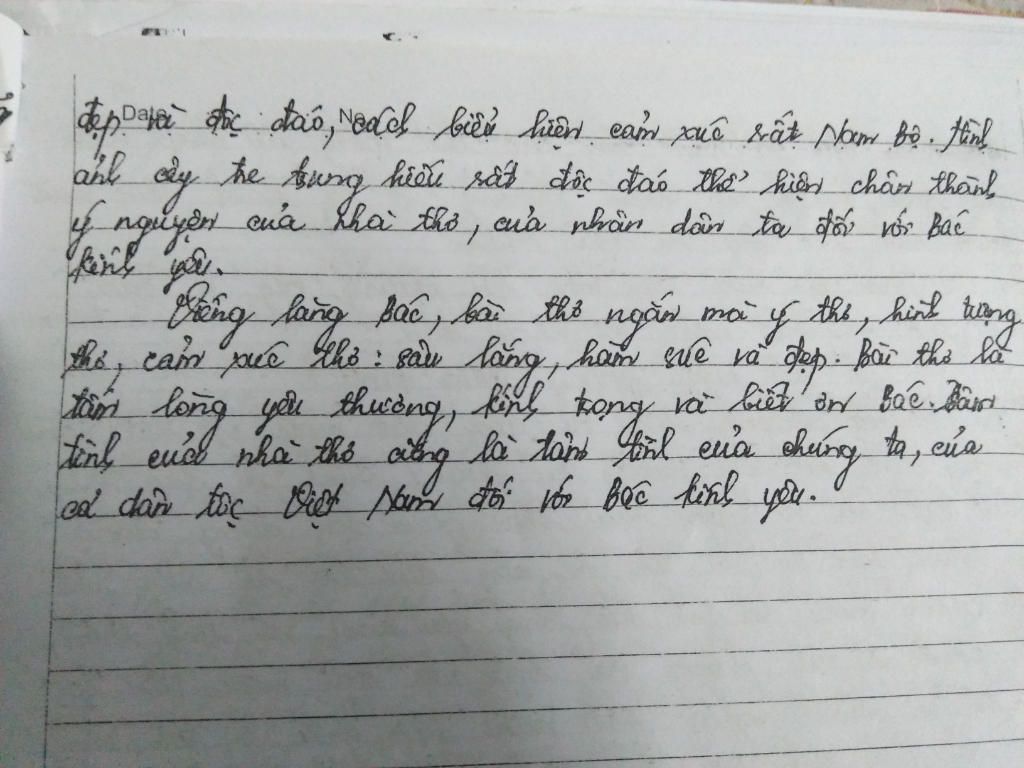 Date No
đẹp và độc đáo, cách biểu hiện cảm xúc rất Nam Bộ. Hình
ảnh cây tre trung hiếu rất độc đáo thể hiện chân thành
ý nguyện của nhà thơ, của nhân dân ta đối với Bác
kính yêu.
Viếng lăng Bác, bài thơ ngắn mà ý thơ, hình tượng
thơ, cảm xúc thơ: sâu lắng, hàm súc và đẹp. Bài thơ là
tấm lòng yêu thương, kính trọng và biết ơn Bác. Tâm
tình của nhà thơ cũng là tâm tình của chúng ta, của
cả dân tộc Việt Nam đối với Bác kính yêu.